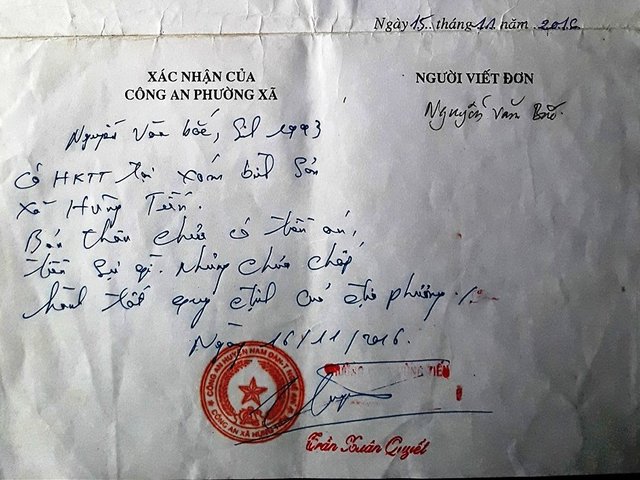 Ngày 15 tháng 11 năm 2016
XÁC NHẬN CỦA
CÔNG AN PHƯỜNG XÃ
NGƯỜI VIẾT ĐƠN
Nguyễn Văn Bắc
Nguyễn Văn Bắc, Sn 1993
Có HKTT tại xóm
xã Hưng Tiến.
Bản thân chưa có tiền án,
tiền sự gì. Nhưng chưa chấp
hành tốt quy định của địa phương ./.
Ngày 16/11/2016.
CÔNG AN HUYỆN NAM ĐÀN-T
CÔNG AN XÃ HƯNG
Trần Xuân Quyết